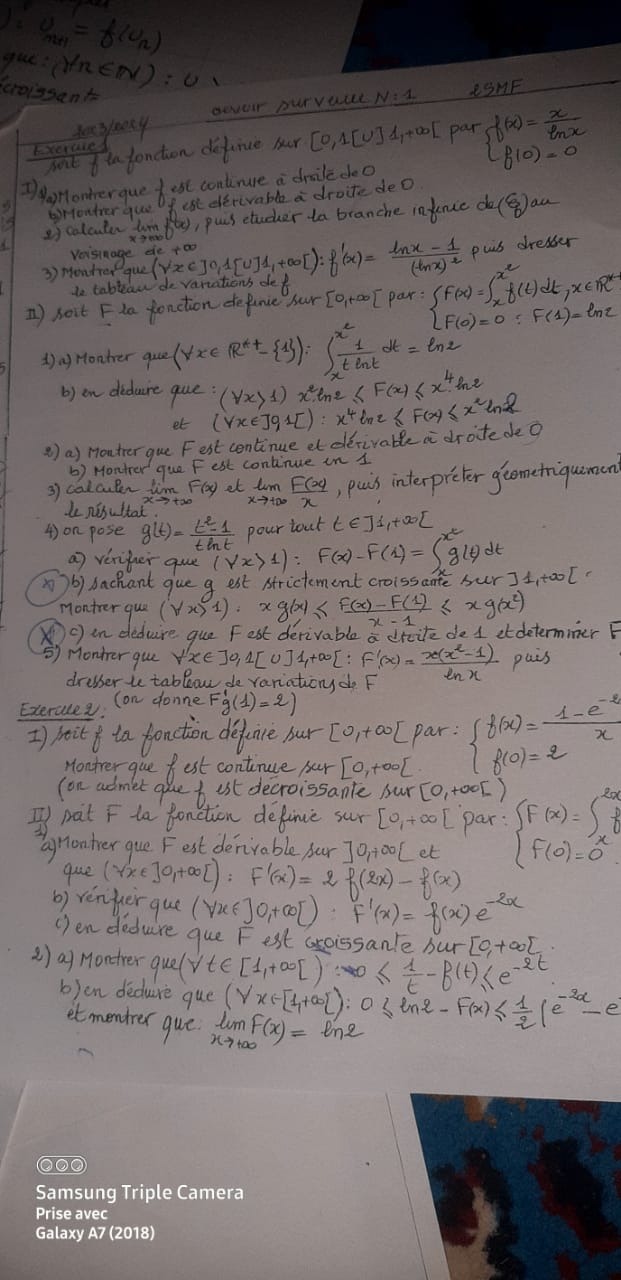 : U_{n+1} = f(U_n)
que : (∀n∈N) : U
croissante
2023/2024 devoir surveillé N:1 2SMF
Exercice1
soit f la fonction définie sur [0,1[U]1,+∞[ par { f(x) = x/lnx
f(0) = 0
I) 1) a) Montrer que f est continue à droite de 0
b) Montrer que f est dérivable à droite de 0.
2) calculer lim_{x→+∞} f(x), puis etudier la branche infinie de (Cf) au
voisinage de +∞
3) Montrer que (∀x∈]0,1[U]1,+∞[) : f'(x) = (lnx - 1)/(lnx)² puis dresser
le tableau de variations de f
II) soit F la fonction definie sur [0,+∞[ par : { F(x) = ∫_x^{x²} f(t)dt, x∈R*+
F(0) = 0 ; F(1) = ln2
1) a) Montrer que (∀x∈ R*+ - {1}) : ∫_x^{x²} 1/(t lnt) dt = ln2
b) en déduire que : (∀x>1) x² ln2 ⩽ F(x) ⩽ x⁴ ln2
et (∀x∈]0,1[) : x⁴ ln2 ⩽ F(x) ⩽ x² ln2
2) a) Montrer que F est continue et dérivable à droite de 0
b) Montrer que F est continue en 1
3) calculer lim_{x→+∞} F(x) et lim_{x→+∞} F(x)/x, puis interpréter géometriquement
le résultat.
4) on pose g(t) = (t²-1)/(t lnt) pour tout t∈]1,+∞[
a) vérifier que (∀x>1) : F(x) - F(1) = ∫_x^{x²} g(t) dt
b) sachant que g est strictement croissante sur ]1,+∞[.
Montrer que (∀x>1) : x g(x) ⩽ (F(x) - F(1))/(x - 1) ⩽ x g(x²)
c) en déduire que F est dérivable à droite de 1 et determiner F
5) Montrer que ∀x∈]0,1[U]1,+∞[ : F'(x) = x(x²-1)/lnx puis
dresser le tableau de variations de F
(on donne F'g(1) = 2)
Exercice 2 :
I) soit f la fonction définie sur [0,+∞[ par : { f(x) = (1-e^{-2
x
f(0) = 2
Montrer que f est continue sur [0,+∞[.
(on admet que f est decroissante sur [0,+∞[)
II) soit F la fonction définie sur [0,+∞[ par : { F(x) = ∫_x^{2x} f
F(0) = 0
1)
a) Montrer que F est dérivable sur ]0,+∞[ et
que (∀x∈]0,+∞[) : F'(x) = 2 f(2x) - f(x)
b) vérifier que (∀x∈]0,+∞[) : F'(x) = f(x) e^{-2x}
c) en déduire que F est croissante sur [0,+∞[.
2) a) Montrer que (∀t∈[1,+∞[) : 0 ⩽ 1/t - f(t) ⩽ e^{-2t}
b) en déduire que (∀x∈[1,+∞[) : 0 ⩽ ln2 - F(x) ⩽ 1/2 (e^{-2x} - e
et montrer que : lim_{x→+∞} F(x) = ln2
Samsung Triple Camera
Prise avec
Galaxy A7 (2018)